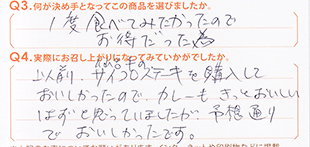 Q3.何が決め手となってこの商品を選びましたか。
1度食べてみたかったので
お得だった為
Q4.実際にお召し上がりになってみていかがでしたか。
以前、サイコロステーキを購入して
おいしかったので、カレーもきっとおいしい
はずと思っていましたが、予想通り
でおいしかったです。